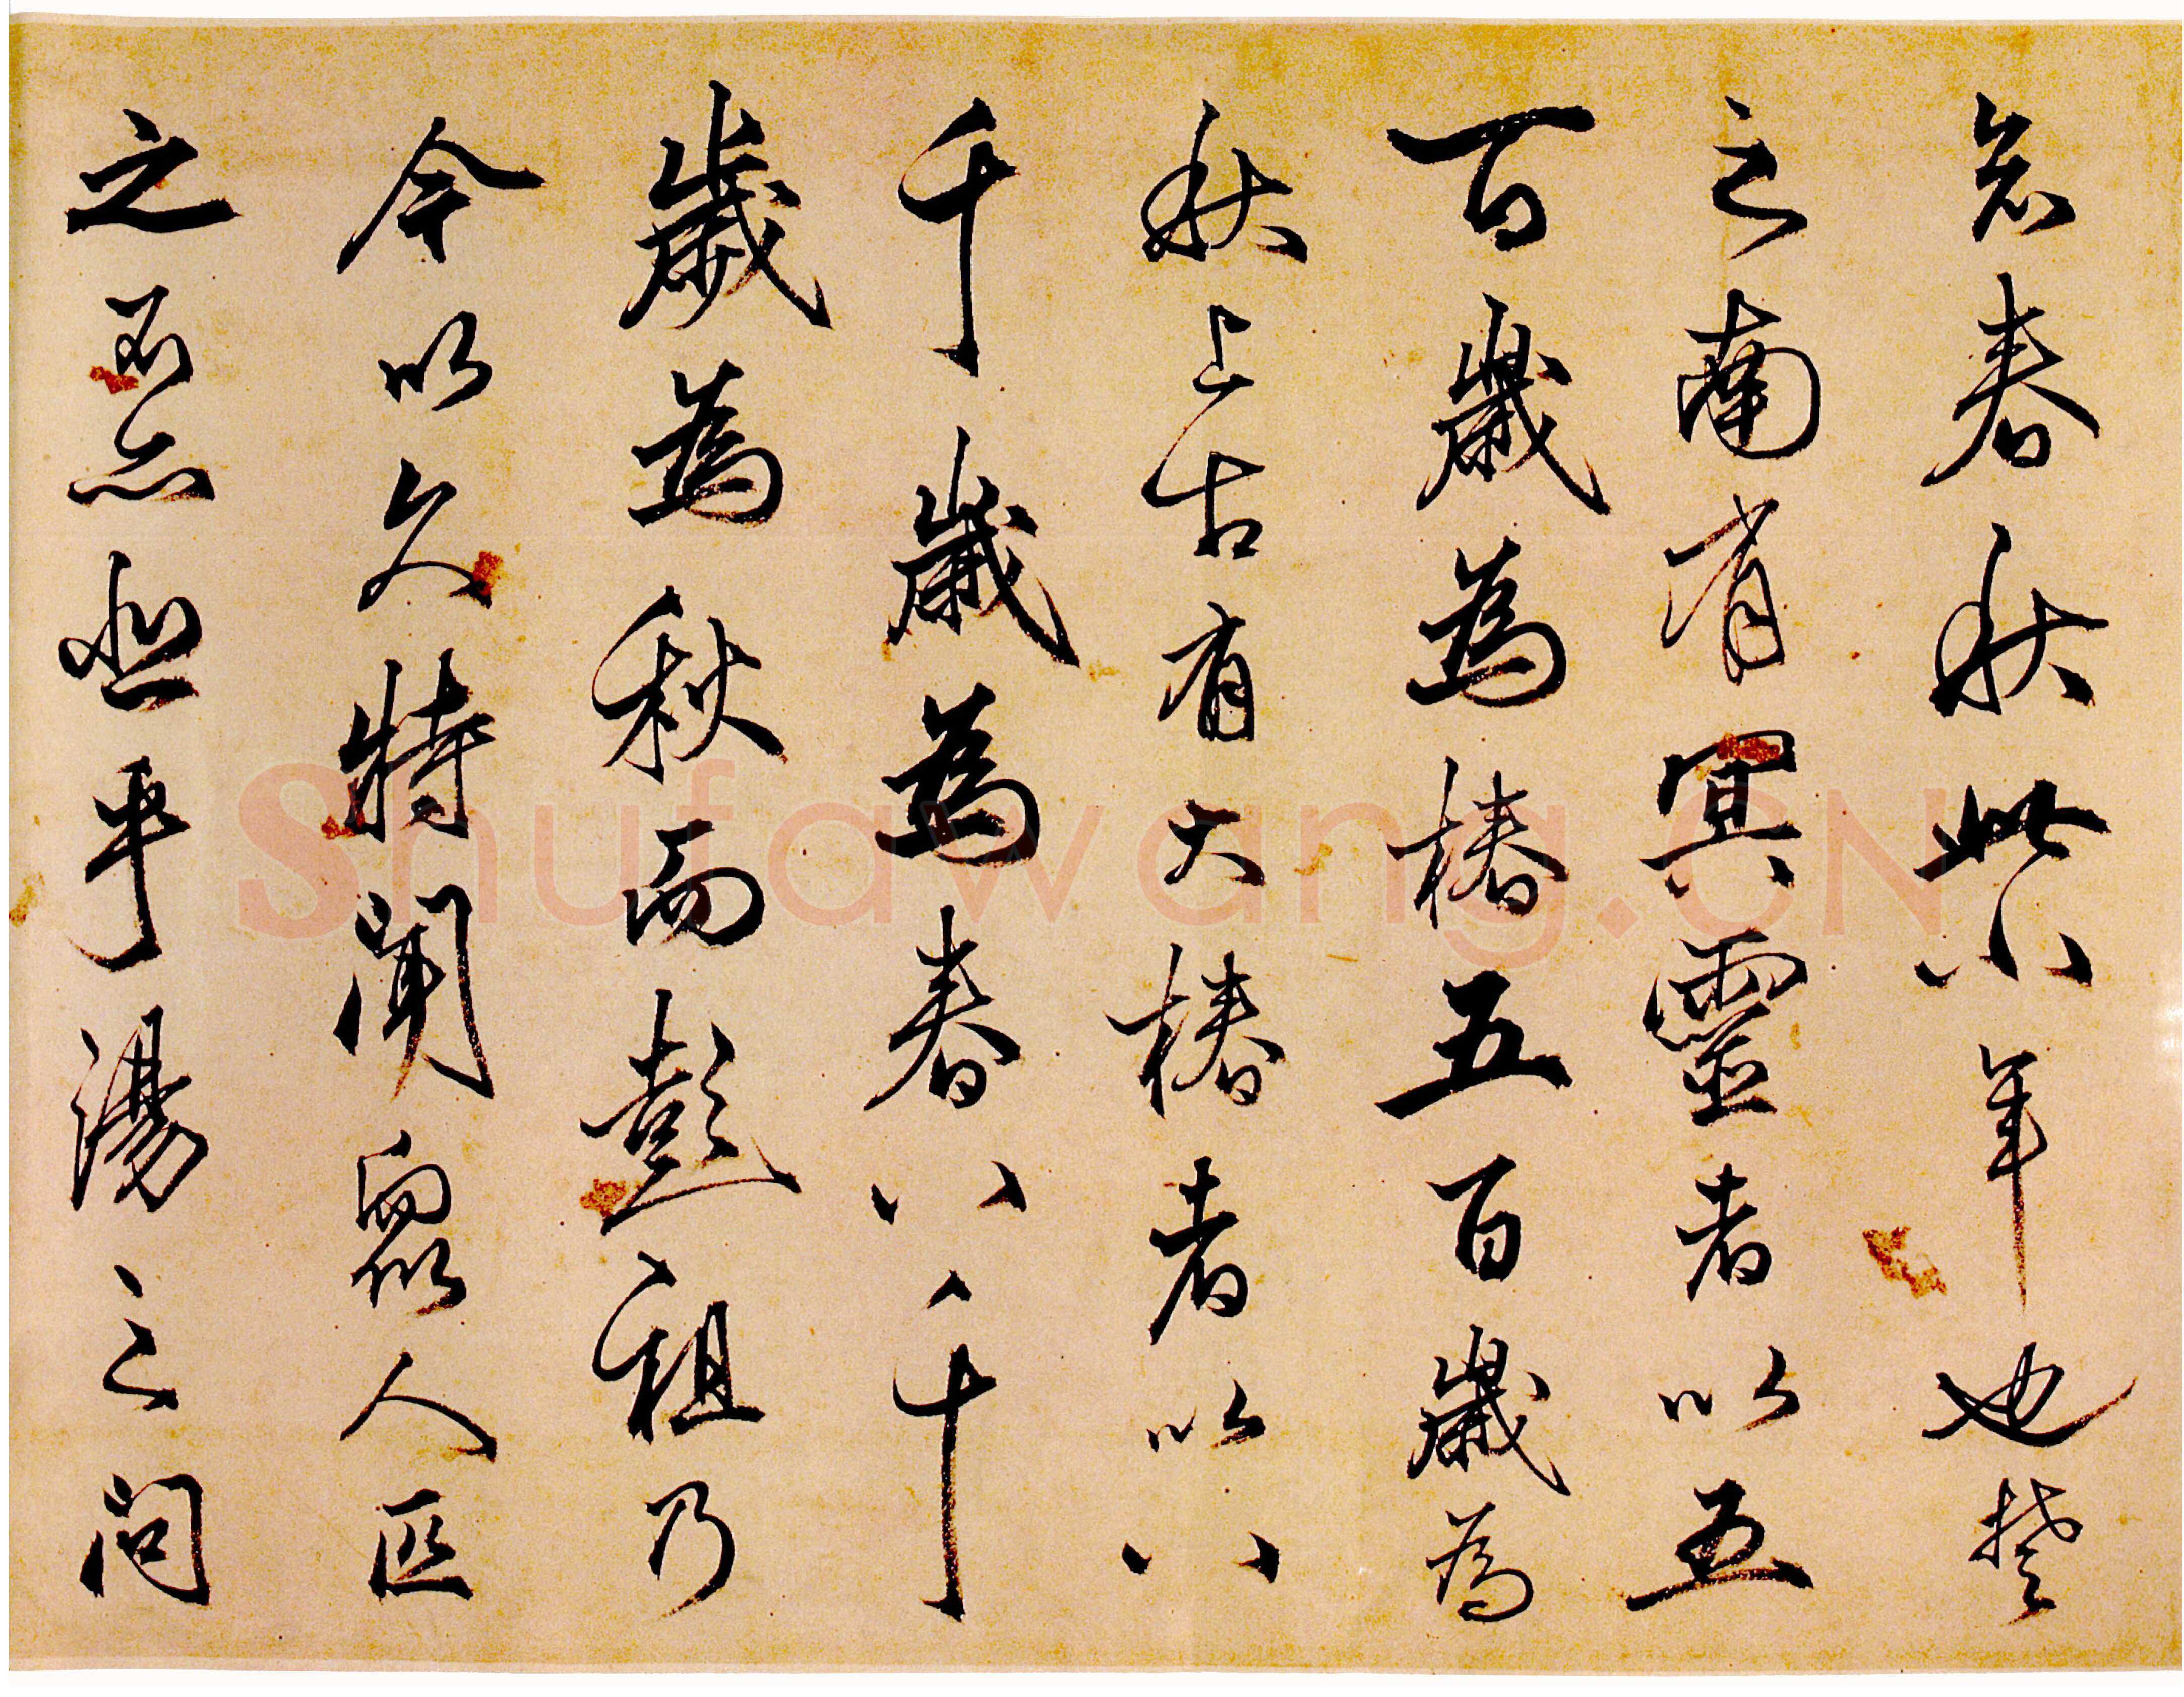 知春秋此小年也楚
之南有冥靈者以五
百歲為椿五百歲為
秋上古有大椿者以八
千歲為春八千
歲為秋而彭祖乃
今以久特聞眾人匹
之不亦悲乎湯之問
Shufawang.CN